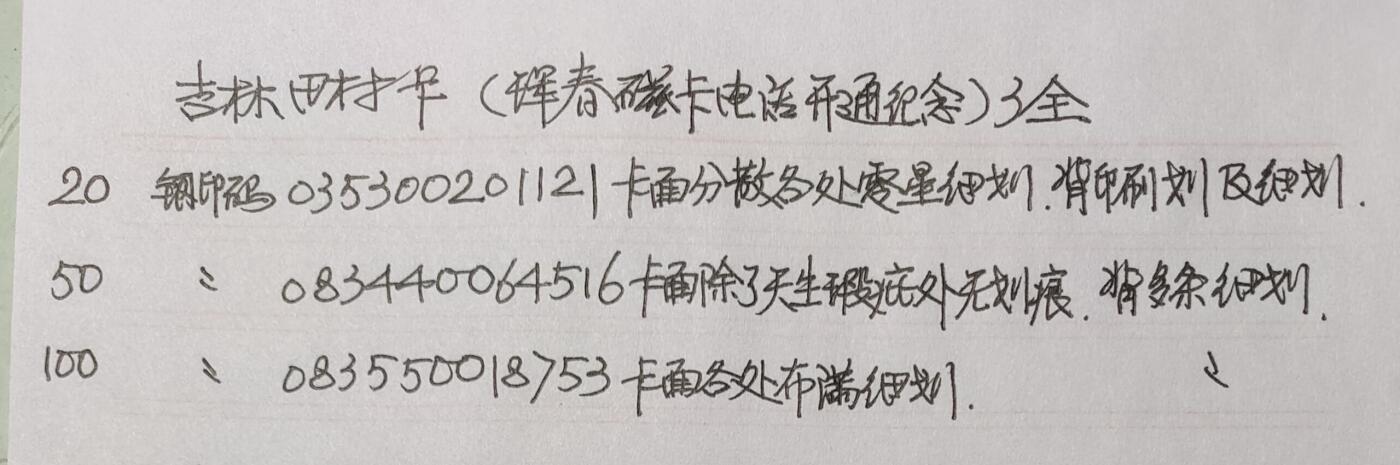 吉林田村卡（珲春磁卡电话开通纪念）3全
20 钢印码 035300201121 卡面分散各处零星细划.背印刷划及细划.
50 〃 083440064516 卡面除了天生瑕疵外无划痕.背多条细划.
100 〃 083550018753 卡面各处布满细划. 〃